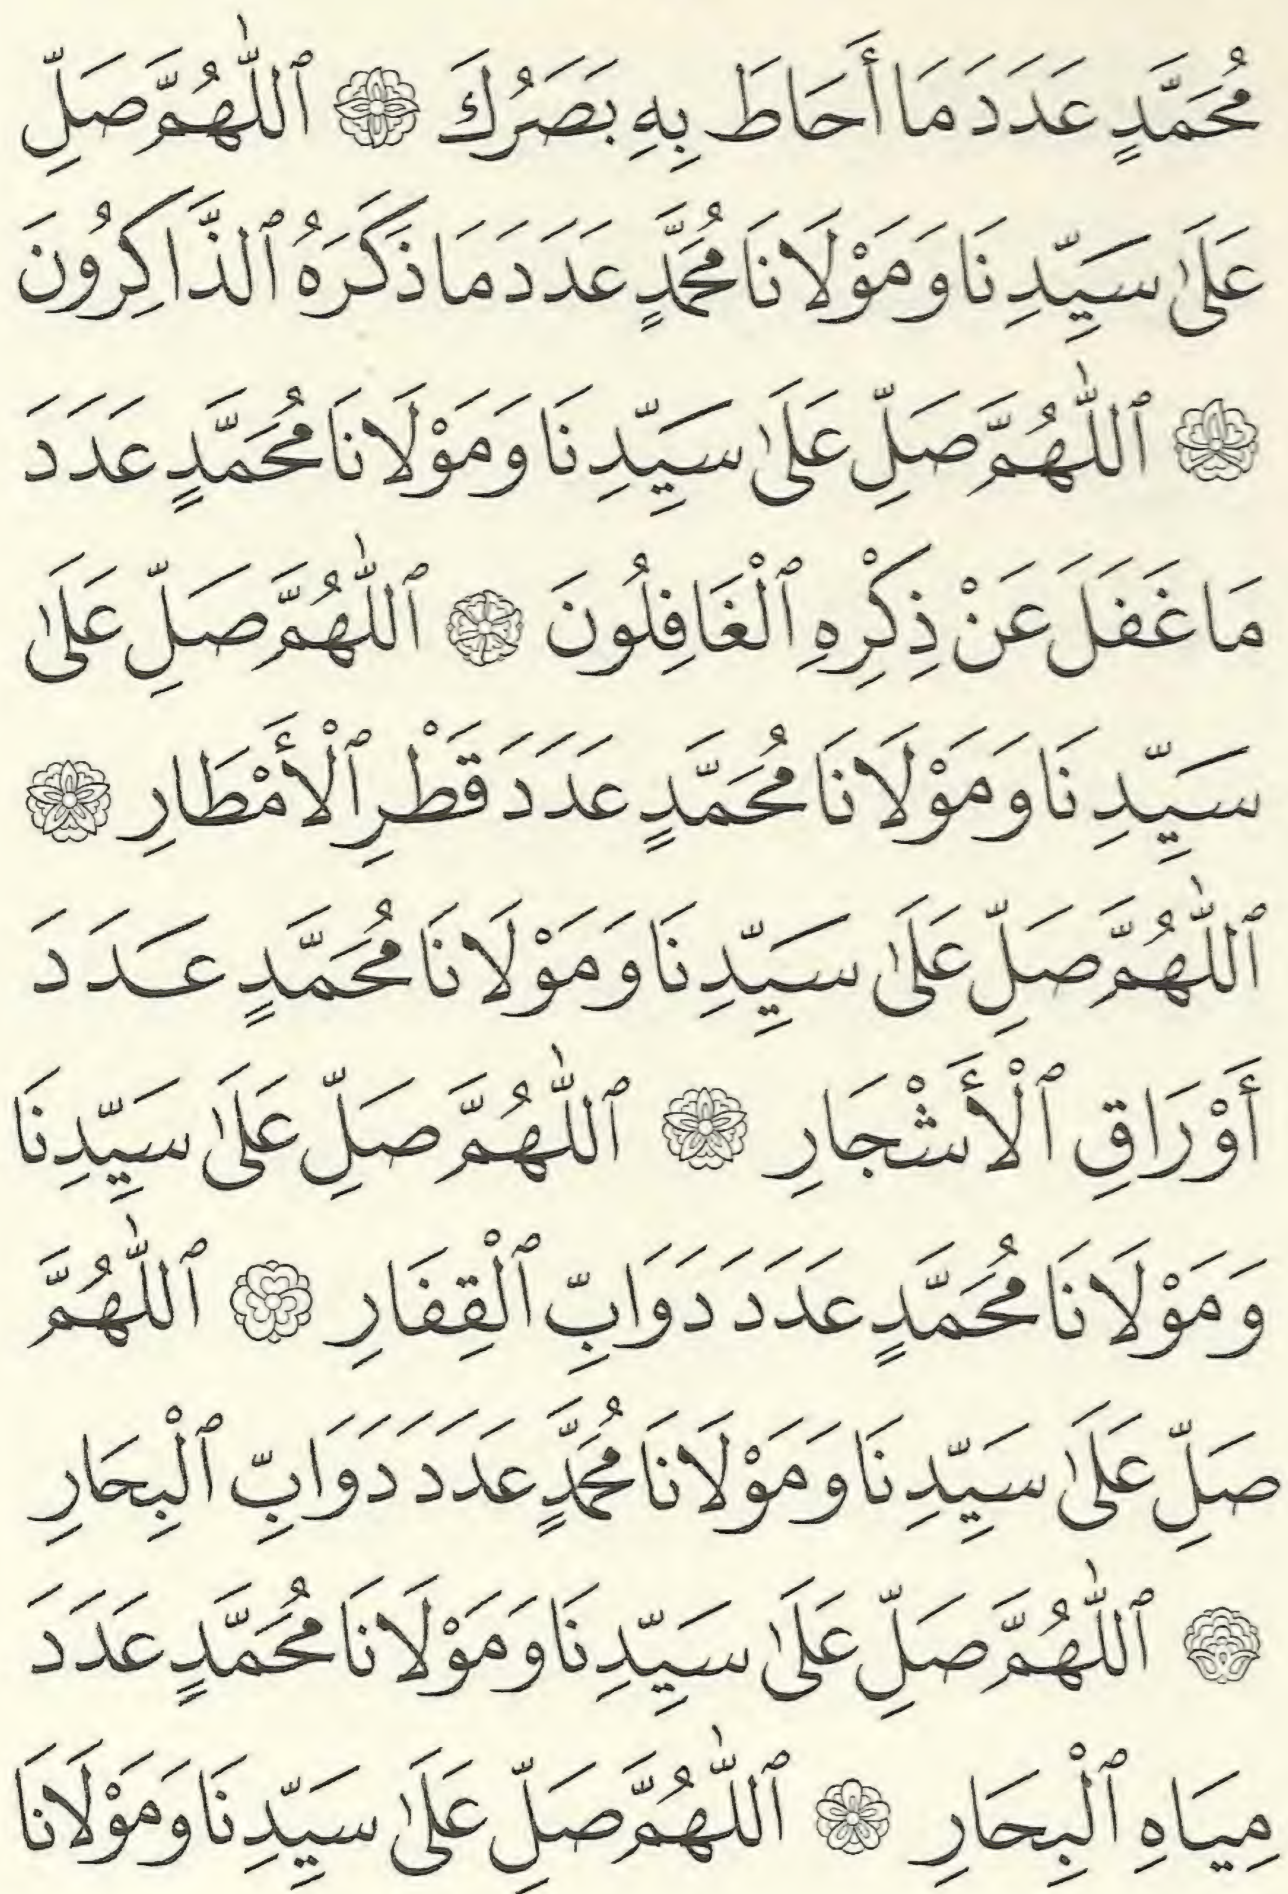 مُحَمَّدٍ عَدَدَ مَا أَحَاطَ بِهِ بَصَرُكَ ۞ ٱللَّٰهُمَّ صَلِّ
عَلَىٰ سَيِّدِنَا وَمَوْلَانَا مُحَمَّدٍ عَدَدَ مَا ذَكَرَهُ ٱلذَّاكِرُونَ
۞ ٱللَّٰهُمَّ صَلِّ عَلَىٰ سَيِّدِنَا وَمَوْلَانَا مُحَمَّدٍ عَدَدَ
مَا غَفَلَ عَنْ ذِكْرِهِ ٱلْغَافِلُونَ ۞ ٱللَّٰهُمَّ صَلِّ عَلَىٰ
سَيِّدِنَا وَمَوْلَانَا مُحَمَّدٍ عَدَدَ قَطْرِ ٱلْأَمْطَارِ ۞
ٱللَّٰهُمَّ صَلِّ عَلَىٰ سَيِّدِنَا وَمَوْلَانَا مُحَمَّدٍ عَدَدَ
أَوْرَاقِ ٱلْأَشْجَارِ ۞ ٱللَّٰهُمَّ صَلِّ عَلَىٰ سَيِّدِنَا
وَمَوْلَانَا مُحَمَّدٍ عَدَدَ دَوَابِّ ٱلْقِفَارِ ۞ ٱللَّٰهُمَّ
صَلِّ عَلَىٰ سَيِّدِنَا وَمَوْلَانَا مُحَمَّدٍ عَدَدَ دَوَابِّ ٱلْبِحَارِ
۞ ٱللَّٰهُمَّ صَلِّ عَلَىٰ سَيِّدِنَا وَمَوْلَانَا مُحَمَّدٍ عَدَدَ
مِيَاهِ ٱلْبِحَارِ ۞ ٱللَّٰهُمَّ صَلِّ عَلَىٰ سَيِّدِنَا وَمَوْلَانَا